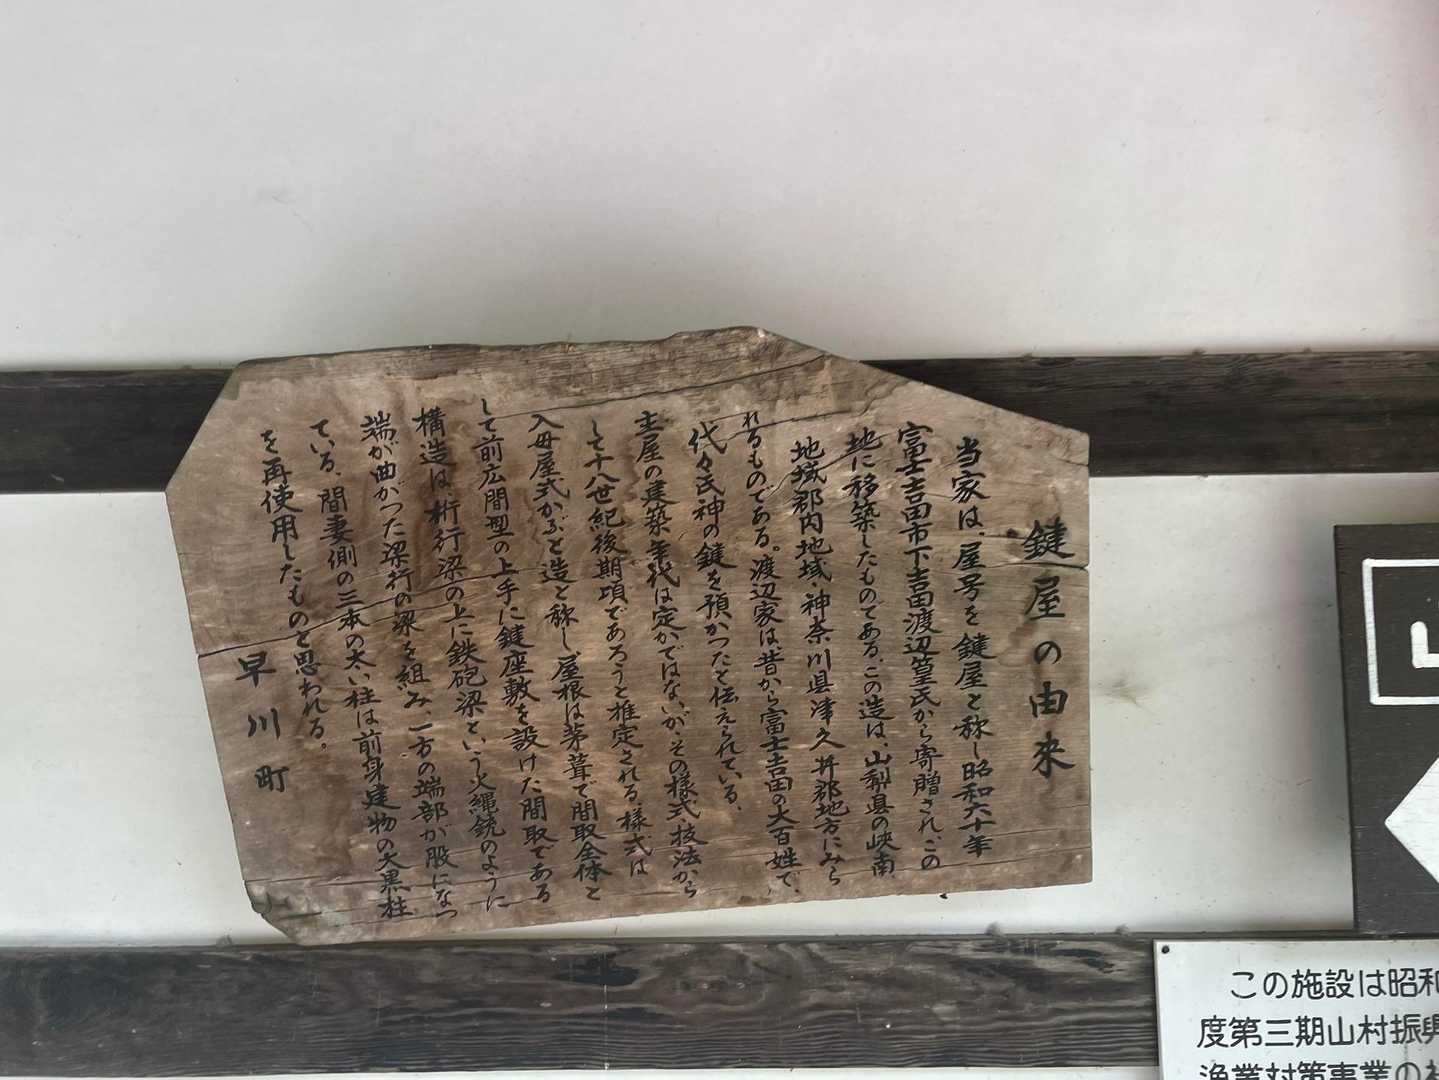 鍵屋の由来
当家は、屋号を鍵屋と称し昭和六十年
富士吉田市下吉田渡辺篁氏から寄贈され、この
地に移築したものである。この造は、山梨県の峡南
地域郡内地域・神奈川県津久井郡地方にみら
れるものである。渡辺家は、昔から富士吉田の大百姓で、
代々氏神の鍵を預かったと伝えられている。
主屋の建築年代は定かではないが、その様式技法から
して十八世紀後期頃であろうと推定される。様式は
入母屋式かぶと造と称し、屋根は茅葺で間取全体と
して前広間型の上手に鍵座敷を設けた間取である
構造は、桁行梁の上に鉄砲梁という火縄銃のように
端が曲がった梁行の梁を組み、一方の端部が股になっ
ている。間妻側の三本の太い柱は前身建物の大黒柱
を再使用したものと思われる。
早川町
この施設は昭和
度第三期山村振興
漁業対策事業の